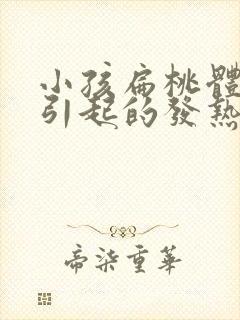 小孩扁桃體
引起的發熱
帝柒重華